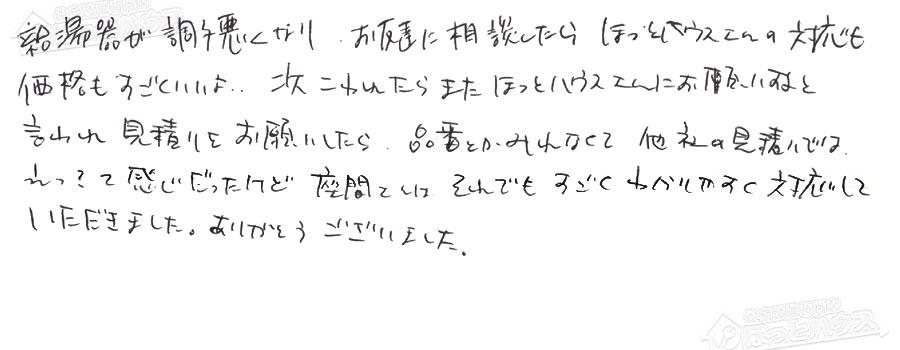 給湯器が調子悪くなり、お友達に相談したら ほっとハウスさんの対応も
価格もすごくいいよ.. 次こわれたらまたほっとハウスさんにお願いするねと
言われ 見積りをお願いしたら、品番とかみれなくて 他社の見積りでは
えっ？て感じだったけど 座間さんは それでもすごくわかりやすく対応して
いただきました。ありがとうございました。
ほっとハウス